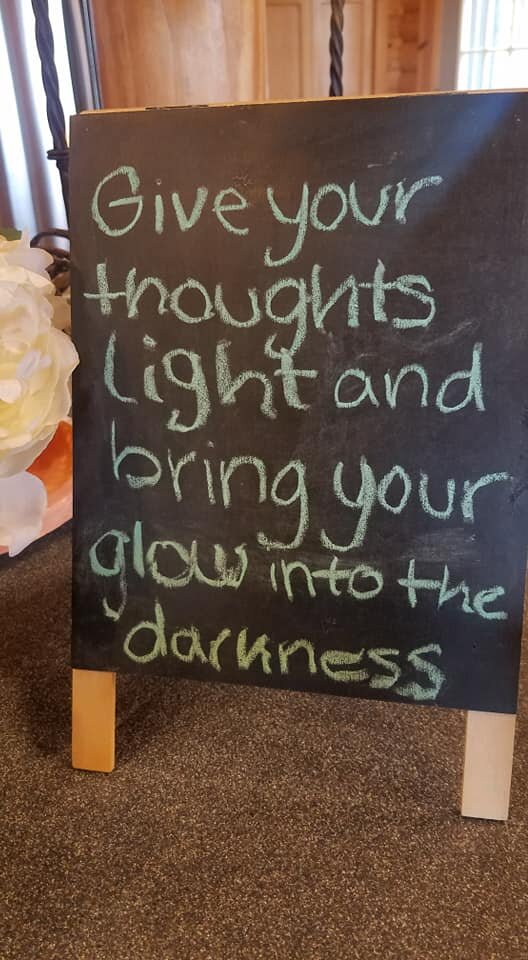 Give your
thoughts
light and
bring your
glow into the
darkness